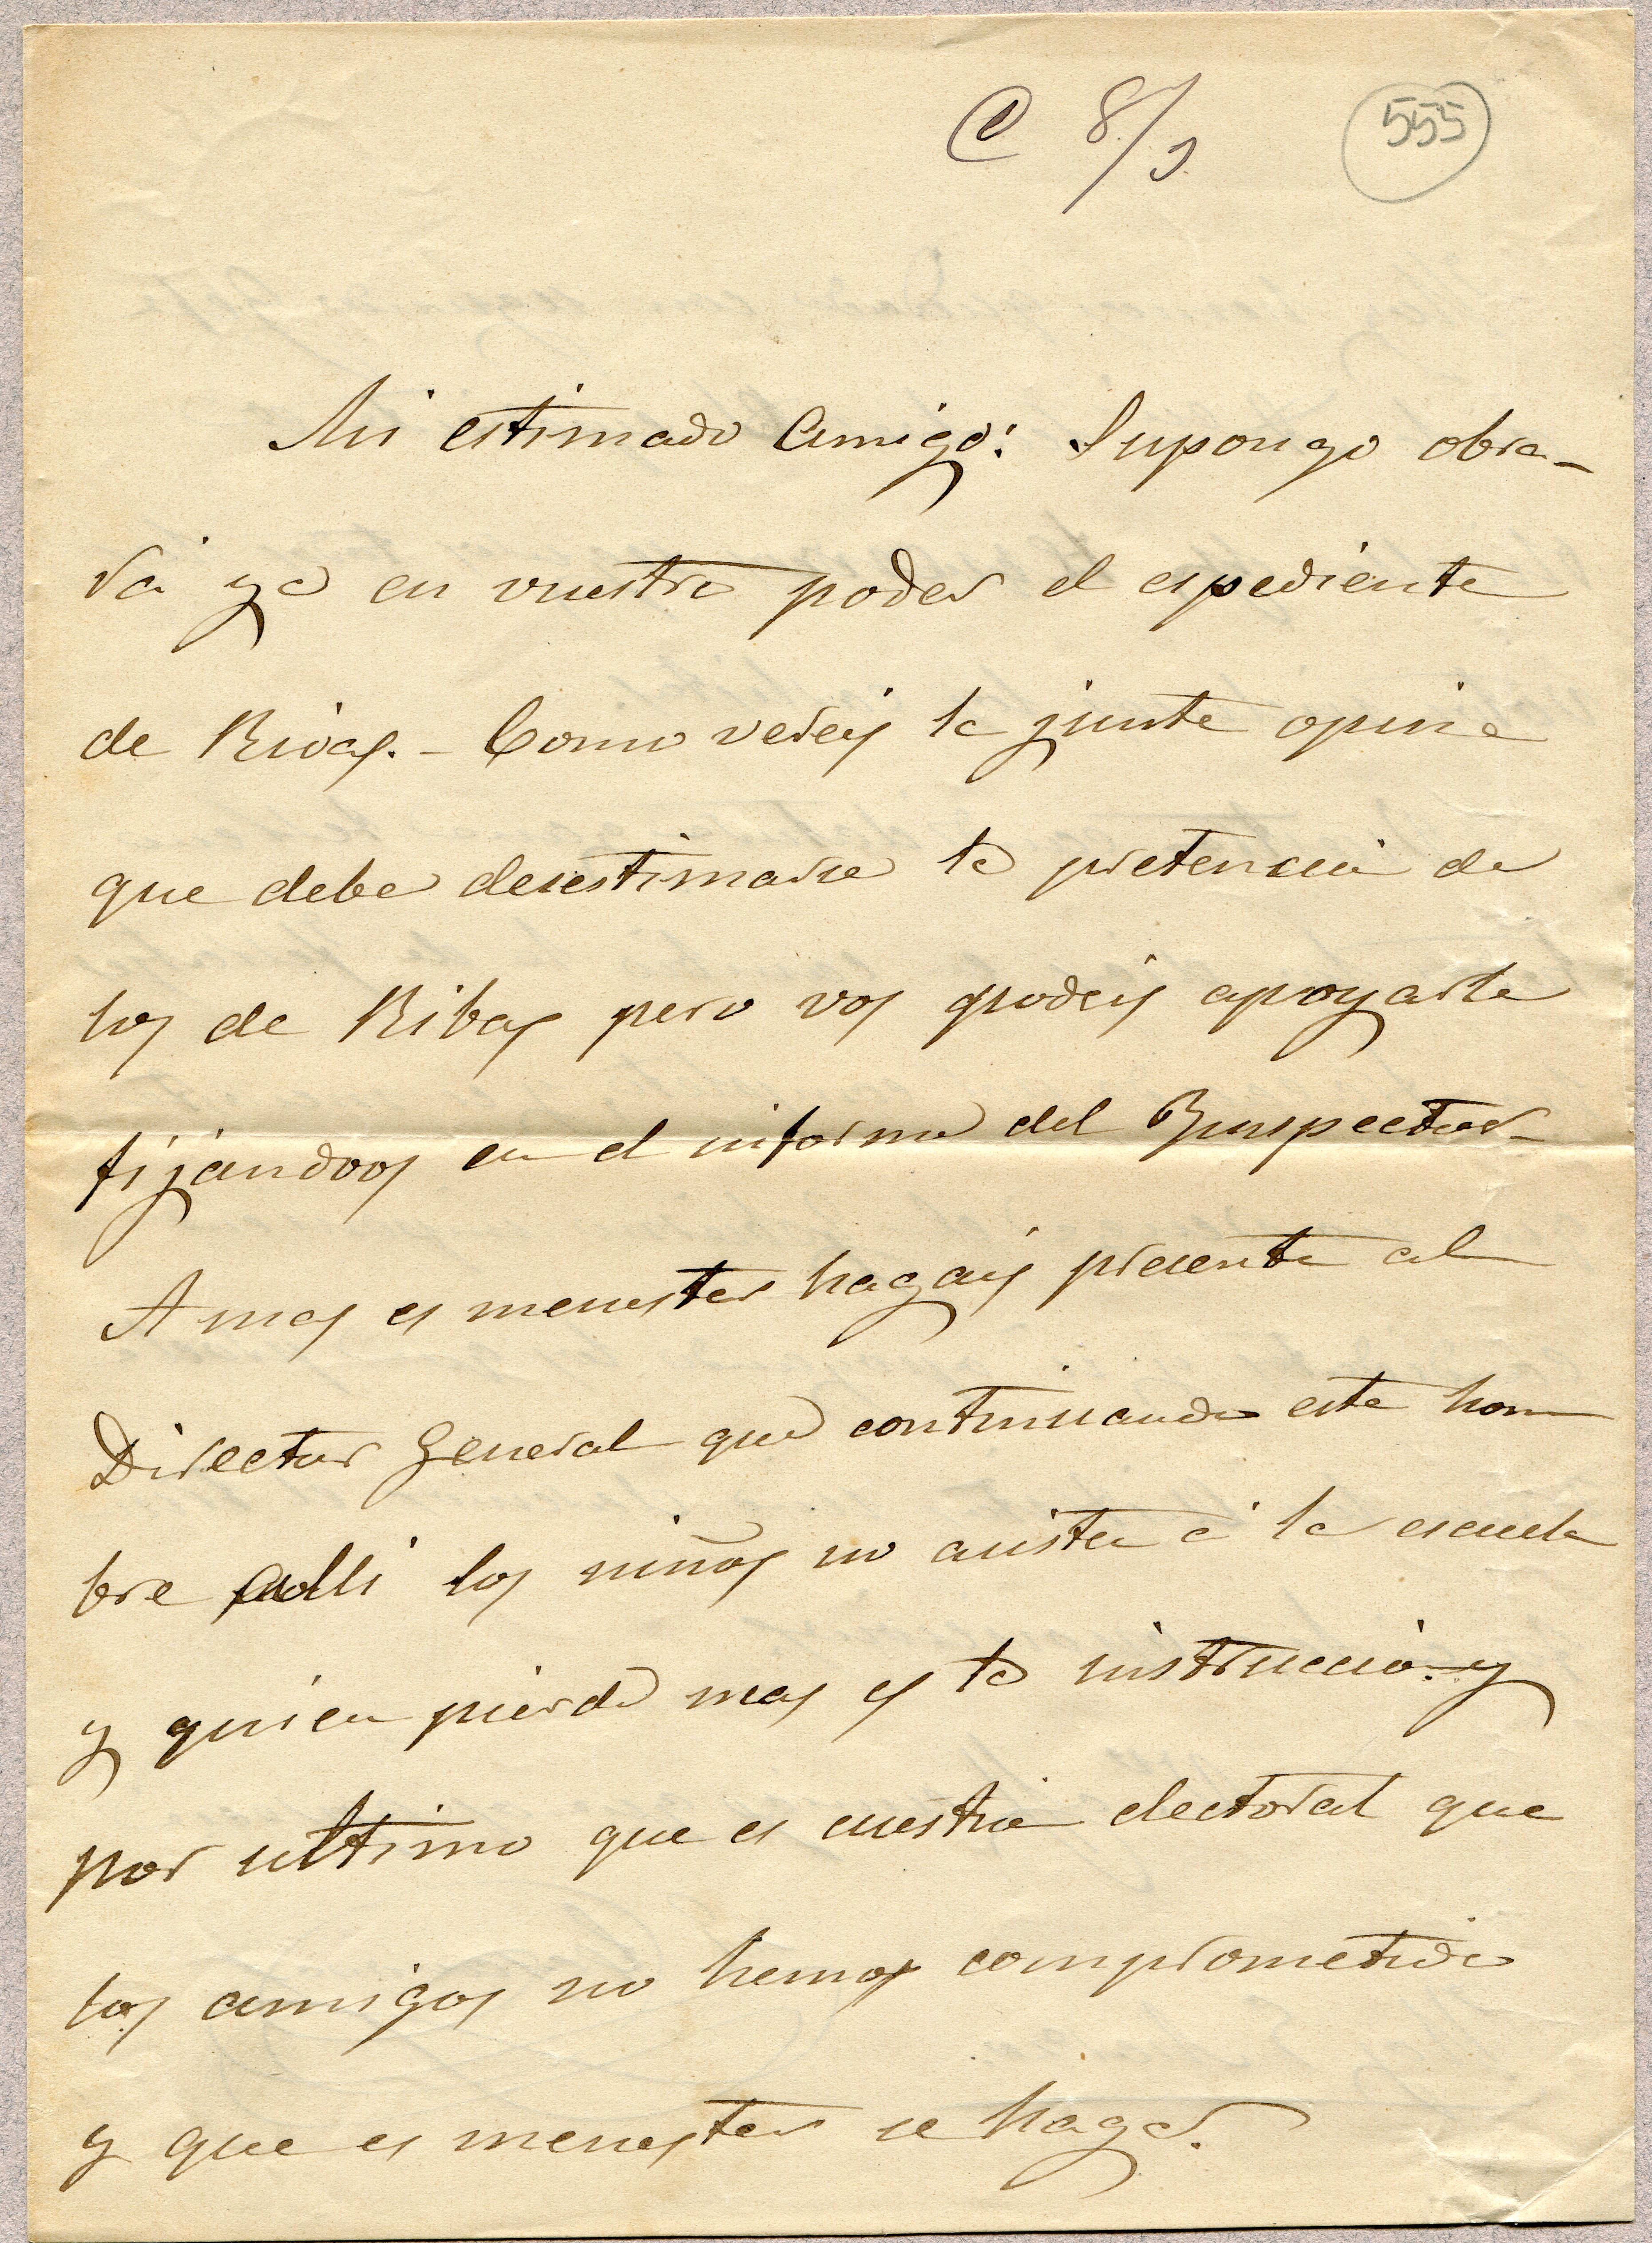 C 8/9 555
Mi estimado Amigo: Supongo obra-
rá ya en vuestro poder el espediente
de Rivas. - Como vereis la junta opina
que debe desestimarse la pretencion de
los de Ribas pero vos podeis apoyarla
fijandoos en el informe del Inspector
A mas es menester hagais presente al
Director General que continuando este hom
bre alli los niños no asisten á la escuela
y quien pierde mas es la instruccion y
por ultimo que es cuestion electoral que
los amigos no hemos comprometido
y que es menester se haga.